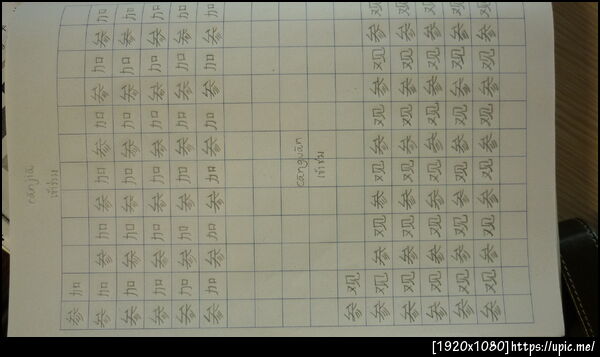 cānjiā
เข้าร่วม
参加
参加参加参加参加参加参加
参加参加参加参加参加参加
参加参加参加参加参加参加
参加参加参加参加参加参加
参加参加参加参加参加参加
cānguān
เข้าชม
参观
参观参观参观参观参观参观
参观参观参观参观参观参观
参观参观参观参观参观参观
参观参观参观参观参观参观
参观参观参观参观参观参观
[1920x1080]https://upic.me/